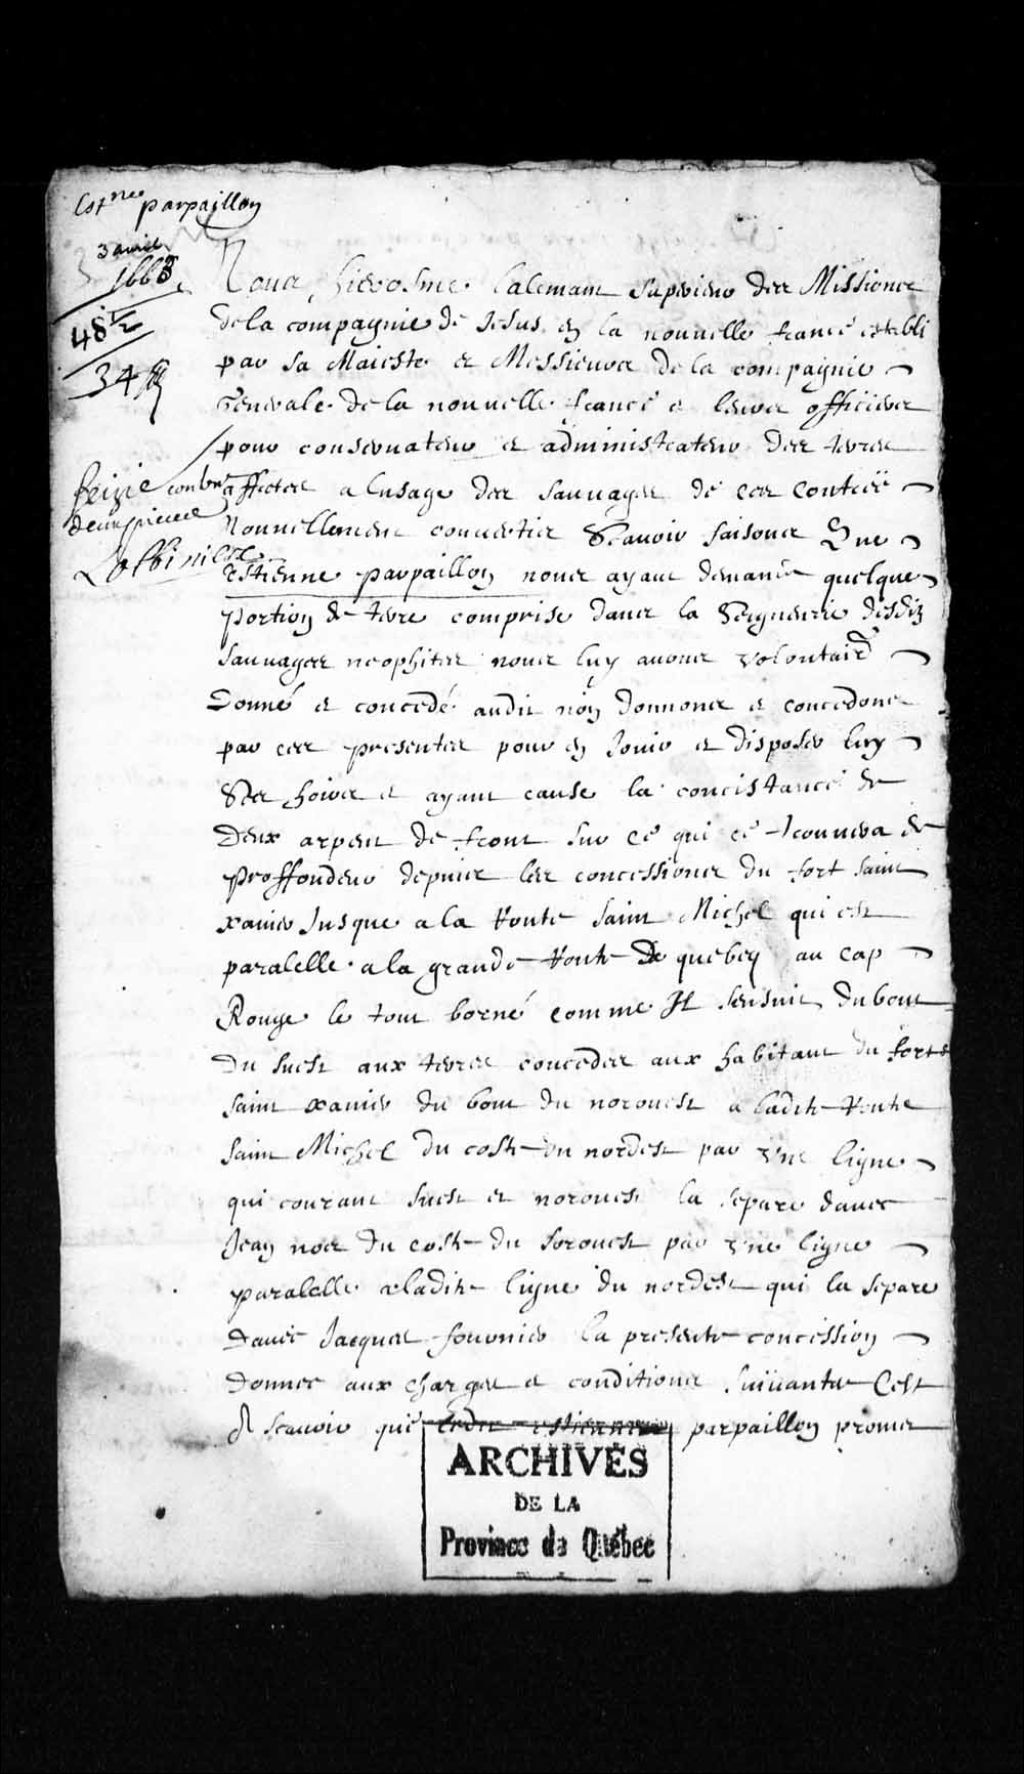 Est.nee parpaillon
3 avril
1668
48
34
Nous hierosme lalemant superieur des Missions
de la compagnie de Jesus en la nouvelle france establi
par sa Maieste et Messieurs de la compagnie
Generale de la nouvelle france et leurs officiers
pour conservateur et administrateur des terres
affectes a lusage des sauvages de ces contrées
Nouvellement convertis Scavoir faisons Que
Estienne parpaillon nous ayant demandé quelque
portion de terre comprise dans la Seigneurie desdiz
sauvages neophites nous luy avons volontaire
Donné et concedé audit nom donnons et concedons
par ces presentes pour en Jouir et disposer luy
Ses hoirs et ayant cause la concistance de
Deux arpent de front sur ce qui ce trouvera de
proffondeur depuis les concessions du fort saint
xavier Jusque a la Route saint Michel qui est
paralelle a la grande Route de quebeq au cap
Rouge le tout borné comme Il sensuit du bout
Du suest aux terres concedes aux habitant du fort
saint xavier du bout du norouest a ladite Route
saint Michel du coste du nordest par Une ligne
qui courant suest et norouest la separe davec
Jean noel du coste du sorouest par Une ligne
paralelle a ladite ligne du nordest qui la separe
Davec Jacques fournier la presente concession
Donnee aux charges et conditions suivantes Cest
A scavoir que ledit estienne parpaillon promet
seizie contenant
deux pieces
Lotbiniere
ARCHIVES
DE LA
Province de Québec